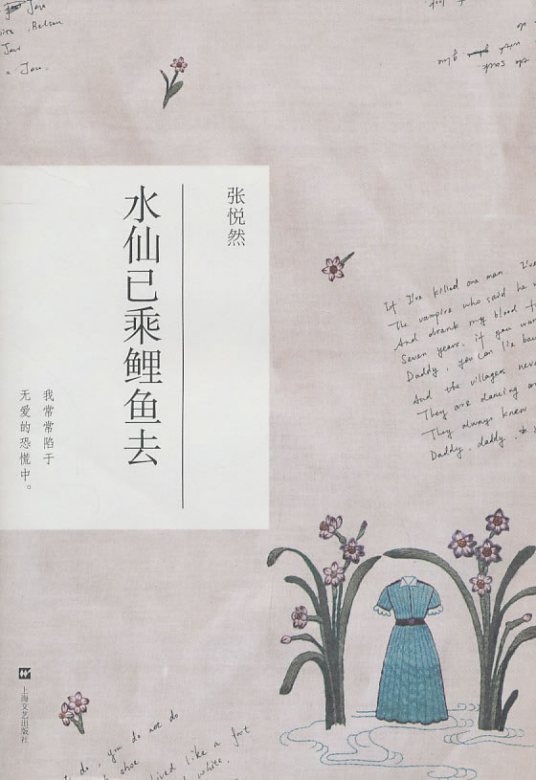 张悦然
水仙已乘鲤鱼去
我常常陷于
无爱的恐慌中。
If I've killed one man, I've
The vampire who said he
And drank my blood
Seven years, if you
Daddy, you can lie
And the villagers
They are dancing
They always knew
Daddy, daddy,
do, you do not do
shoe
lived like a foot
white.
上海文艺出版社